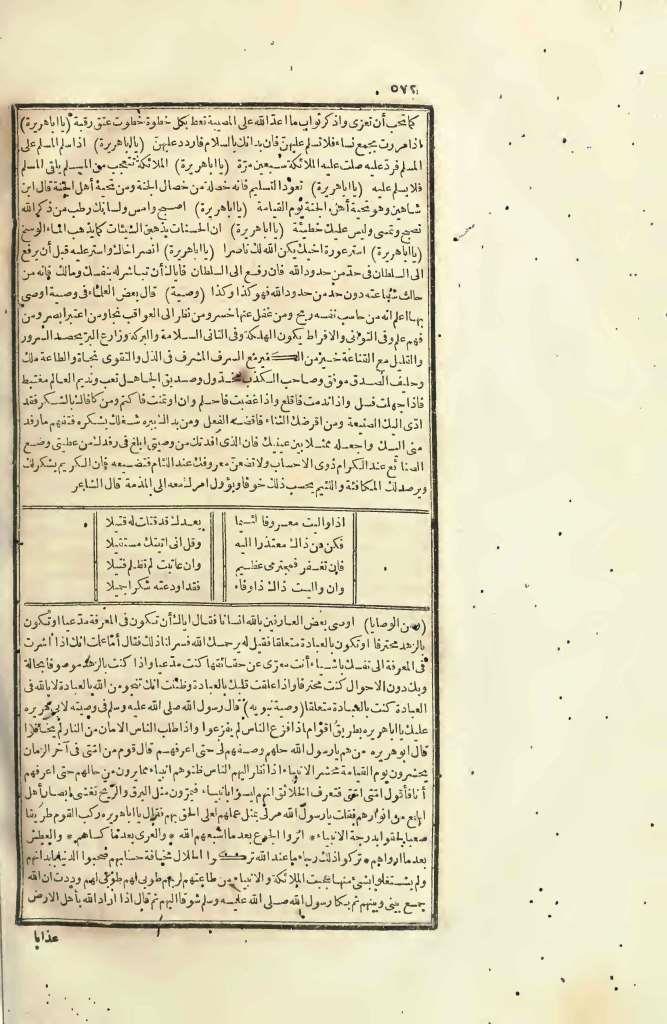 ٥٧٢
كما تحب أن تعزى واذكر ثواب ما أعد الله على المصيبة تعط بكل خطوة خطوت عتق رقبة (يا اباهريرة)
اذا مررت بجمع نساء فلا تسلم عليهن فان بدأنك بالسلام فاردد عليهن (يا اباهريرة) اذا سلم المسلم على
المسلم فرد عليه صلت عليه الملائكة سبعين مرة (يا اباهريرة) الملائكة تتعجب من المسلم يلقى المسلم
فلا يسلم عليه (يا اباهريرة) تعود التسليم فانه خصلة من خصال الجنة ومن تحية أهل الجنة قال ابن
شاهين وهو تحية أهل الجنة يوم القيامة (يا اباهريرة) اصبح وامس ولسانك رطب من ذكر الله
تصبح وتمسى وليس عليك خطيئة (يا اباهريرة) ان الحسنات يذهبن السيئات كما يذهب الماء الوسخ
(يا اباهريرة) استر عورة اخيك يكن الله لك ناصرا (يا اباهريرة) انصر اخاك واستر عليه قبل أن يرفع
الى السلطان فى حد من حدود الله فان رفع الى السلطان فاياك أن تباشر له بنفسك ومالك فانه من
حالت شفاعته دون حد من حدود الله فهو كذا وكذا (وصية) قال بعض العلماء فى وصية اوصى
بها اعلم انه من حاسب نفسه ربح ومن غفل عنها خسر ومن نظر الى العواقب نجا ومن اعتبر ابصر ومن
فهم علم وفى التوانى والافراط يكون الهلكة وفى التانى السلامة والبركة وزارع البر يحصد السرور
والقليل مع القناعة خير من الكثير مع السرف المشرف فى الذل والتقوى نجاة والطاعة ملك
وحليف الصدق موفق وصاحب الكذب مخذول وصديق الجاهل تعب ونديم العالم مغتبط
فاذا جهلت فسل واذا ندمت فاقلع واذا غضبت فاحلم وان اوتمنت فاكتم ومن كافاك بالشكر فقد
ادى اليك الصنيعة ومن اقرضك الثناء فاقضه الفعل ومن بدأك ببره شغلك بشكره فتفهم ما رفد
منى اليك واجعله ممثلا بين عينيك فان الذى افدتك من وصيتى ابلغ فى رفدك من عطيتى وضع
الصنائع عند الكرام ذوى الاحساب ولا تضعن معروفك عند اللئام فتضيعه فان الكريم يشكرلك
ويرصد لك المكافئة واللئيم يحسب ذلك خوفا ويؤول امرك معه الى المذمة قال الشاعر
اذا واليت معروفا لئيما يعدك قد قتلت له قتيلا
فكن من ذاك معتذرا اليه وقل انى اتيتك مستقيلا
فان تغفر فمجترمى عظيم وان عاتبت لم تظلم فتيلا
وان واليت ذاك ذا وفاء فقد اودعته شكرا جميلا
(ومن الوصايا) اوصى بعض العارفين بالله انسانا فقال اياك أن تكون فى المعرفة مدعيا او تكون
بالزهد محترفا او تكون بالعبادة متعلقا فقيل له يرحمك الله فسر لنا ذلك فقال أما علمت انك اذا اشرت
فى المعرفة الى نفسك باشياء أنت معرى عن حقائقها كنت مدعيا واذا كنت بالزهد موصوفا بحالة
وبك دون الاحوال كنت محترفا واذا علقت قلبك بالعبادة وظننت انك تنجو من الله بالعبادة لا بالله فى
العبادة كنت بالعبادة متعلقا (وصية نبوية) قال رسول الله صلى الله عليه وسلم فى وصيته لابى هريره
عليك يا اباهريره بطريق اقوام اذا فزع الناس لم يفزعوا واذا طلب الناس الامان من النار لم يخافوا
قال ابوهريره من هم يا رسول الله حلهم وصفهم لى حتى اعرفهم قال قوم من امتى فى آخر الزمان
يحشرون يوم القيامة محشر الانبياء اذا نظر اليهم الناس ظنوهم انبياء مما يرون من حالهم حتى اعرفهم
أنا فأقول امتى امتى فتعرف الخلائق انهم ليسوا بانبياء فيمرون مثل البرق والريح تغشى ابصار أهل
الجمع من انوارهم فقلت يا رسول الله مر لى بمثل عملهم لعلى الحق بهم فقال يا اباهريره ركب القوم طريقا
صعبا لحقوا بدرجة الانبياء* اثروا الجوع بعد ما اشبعهم الله * والعرى بعد ما كساهم * والعطش
بعد ما ارواهم* تركوا ذلك رجاء ما عند الله تركوا الحلال مخافة حسابه صحبوا الدنيا بابدانهم
ولم يشتغلوا بشئ منها عجبت الملائكة والانبياء من طاعتهم لربهم طوبى لهم طوبى لهم وددت ان الله
جمع بينى وبينهم ثم بكا رسول الله صلى الله عليه وسلم شوقا اليهم ثم قال اذا اراد الله بأهل الارض
عذابا